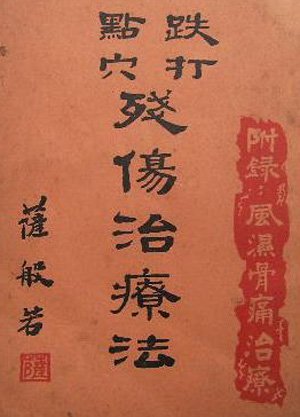 跌打
點穴
殘傷治療法
附錄：風濕骨痛治療
薩般若